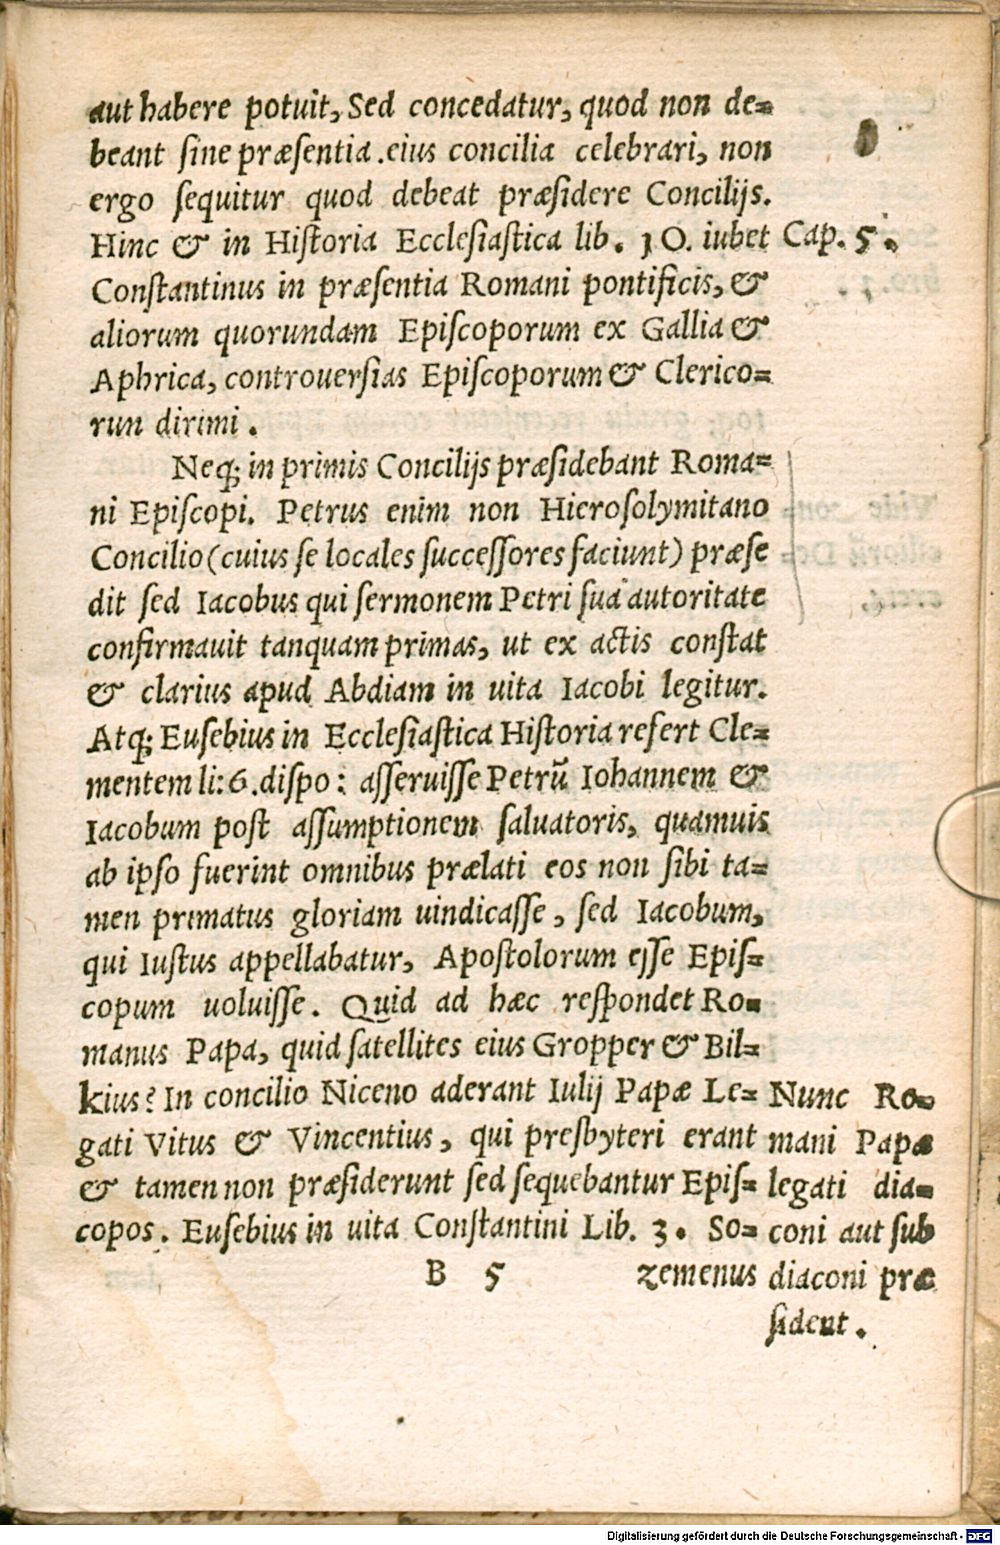 aut habere potuit, Sed concedatur, quod non de=
beant ſine præſentia .eius concilia celebrari, non
ergo ſequitur quod debeat præſidere Concilijs.
Hinc & in Hiſtoria Eccleſiaſtica lib. 10. iubet Cap. 5.
Conſtantinus in præſentia Romani pontificis, &
aliorum quorundam Epiſcoporum ex Gallia &
Aphrica, controuerſias Epiſcoporum & Clerico=
run dirimi.
Neq; in primis Concilijs præſidebant Roma=
ni Epiſcopi. Petrus enim non Hieroſolymitano
Concilio (cuius ſe locales ſucceſſores faciunt) præſe
dit ſed Iacobus qui ſermonem Petri ſua autoritate
confirmauit tanquam primas, ut ex actis conſtat
& clarius apud Abdiam in uita Iacobi legitur.
Atq; Euſebius in Eccleſiaſtica Hiſtoria refert Cle=
mentem li: 6. diſpo: aſſeruiſſe Petrũ Iohannem &
Iacobum poſt aſſumptionem ſaluatoris, quamuis
ab ipſo fuerint omnibus prælati eos non ſibi ta=
men primatus gloriam uindicaſſe, ſed Iacobum,
qui Iuſtus appellabatur, Apoſtolorum eſſe Epiſ=
copum uoluiſſe. Quid ad hæc reſpondet Ro=
manus Papa, quid ſatellites eius Gropper & Bil=
kius? In concilio Niceno aderant Iulij Papæ Le=
gati Vitus & Vincentius, qui presbyteri erant
& tamen non præſiderunt ſed ſequebantur Epiſ=
copos. Euſebius in uita Conſtantini Lib. 3. So=
B 5 zemenus
Nunc Ro=
mani Papæ
legati dia=
coni aut ſub
diaconi præ
ſident.
Digitalisierung gefördert durch die Deutsche Forschungsgemeinschaft - DFG